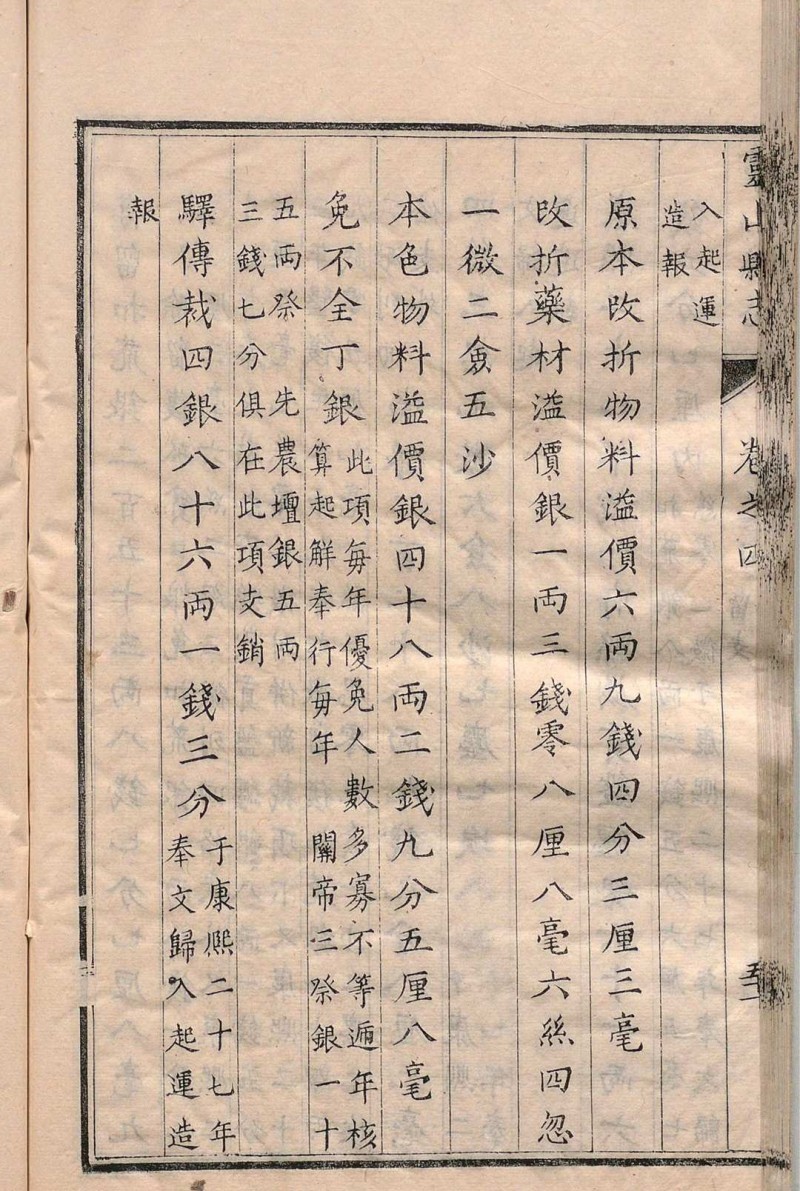 靈山縣志 卷之四
入起運
造報
原本改折物料溢價六両九錢四分三厘三毫
改折藥材溢價銀一両三錢零八厘八毫六絲四忽
一微二僉五沙
本色物料溢價銀四十八両二錢九分五厘八毫
免不全丁銀
此項每年優免人數多寡不等遞年核
算起解奉行每年 關帝三祭銀一十
五両祭 先農壇銀五両
三錢七分俱在此項支銷
驛傳裁四銀八十六両一錢三分
于康熙二十七年
奉文歸入起運造
報